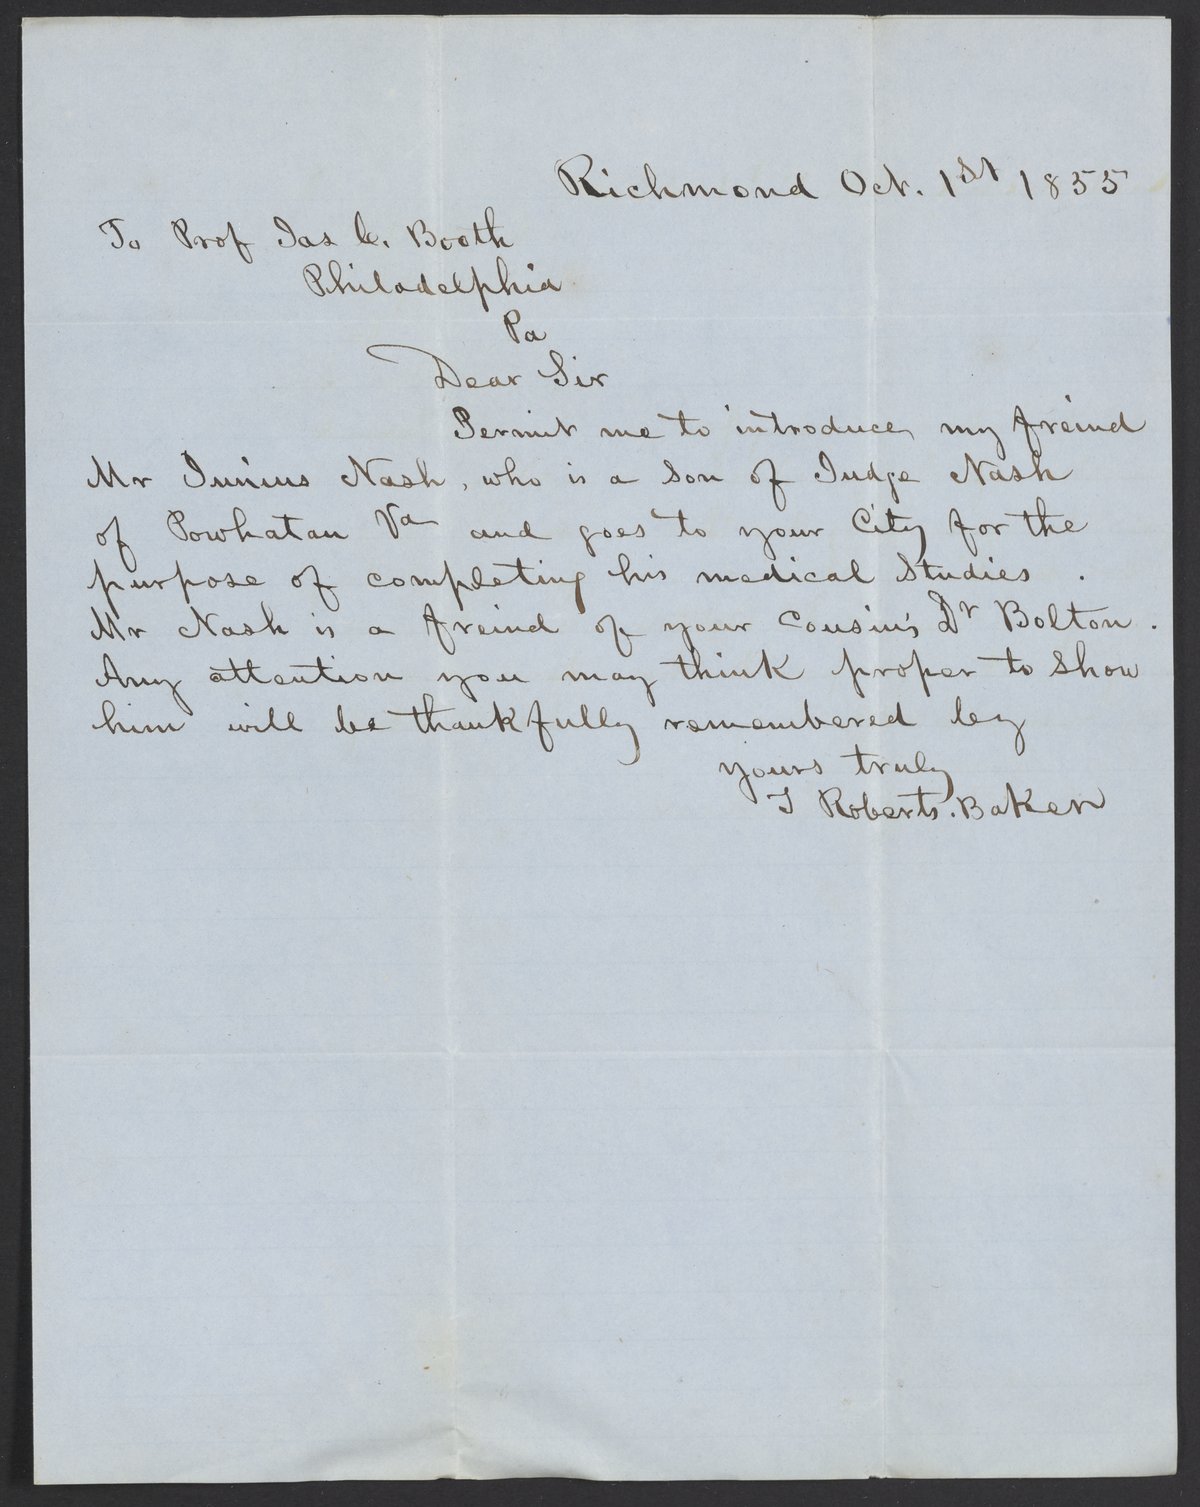 Richmond Oct. 1st 1855
To Prof Jas C. Booth
Philadelphia
Pa
Dear Sir
Permit me to introduce my freind
Mr Junius Nash, who is a son of Judge Nash
of Powhatan Va and goes to your City for the
purpose of completing his medical Studies.
Mr Nash is a freind of your Cousin's Dr Bolton.
Any attention you may think proper to Show
him will be thankfully remembered by
yours truly
T Roberts. Baker